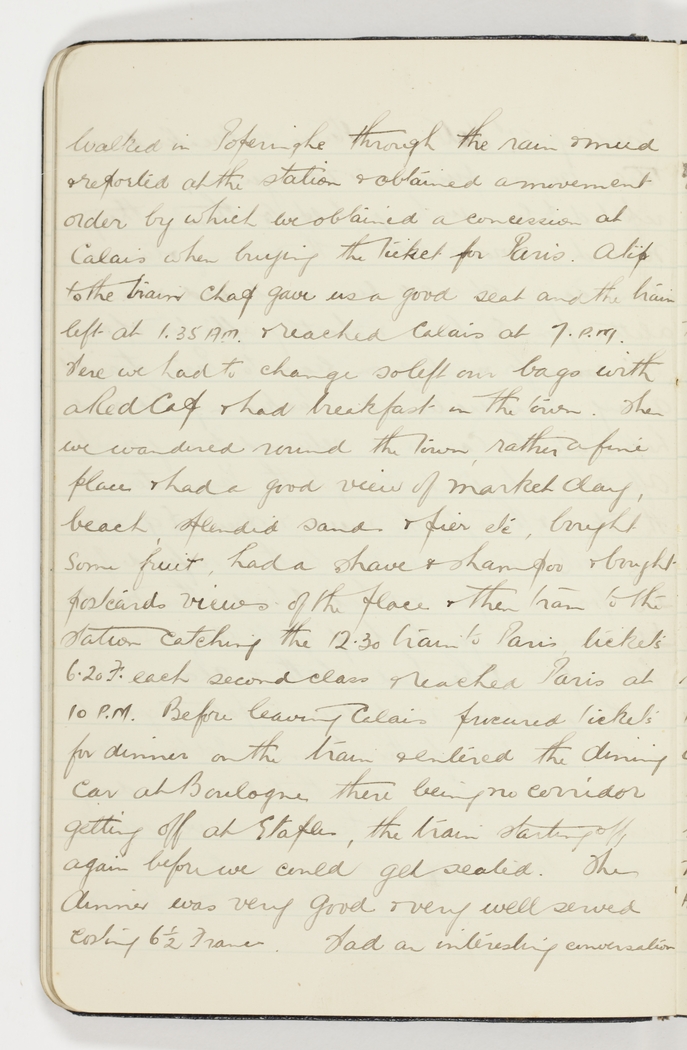 walked in Poperinghe through the rain & mud
& reported at the station & obtained a movement
order by which we obtained a concession at
Calais when buying the ticket for Paris. A tip
to the train chap gave us a good seat and the train
left at 1.35 A.M. & reached Calais at 7. P.M.
Here we had to change so left our bags with
a Red Cap & had breakfast in the town. Then
we wandered round the town, rather a fine
place & had a good view of market day,
beach, splendid sands & pier etc, bought
some fruit, had a shave & shampoo & bought
postcards views of the place & then tram to the
station catching the 12.30 train to Paris, tickets
6.20 F. each second class & reached Paris at
10 P.M. Before leaving Calais procured tickets
for dinner on the train & entered the dining
car at Boulogne there being no corridor
getting off at Etaples, the train starting off
again before we could get seated. The
dinner was very good & very well served
costing 6½ Francs. Had an interesting conversation